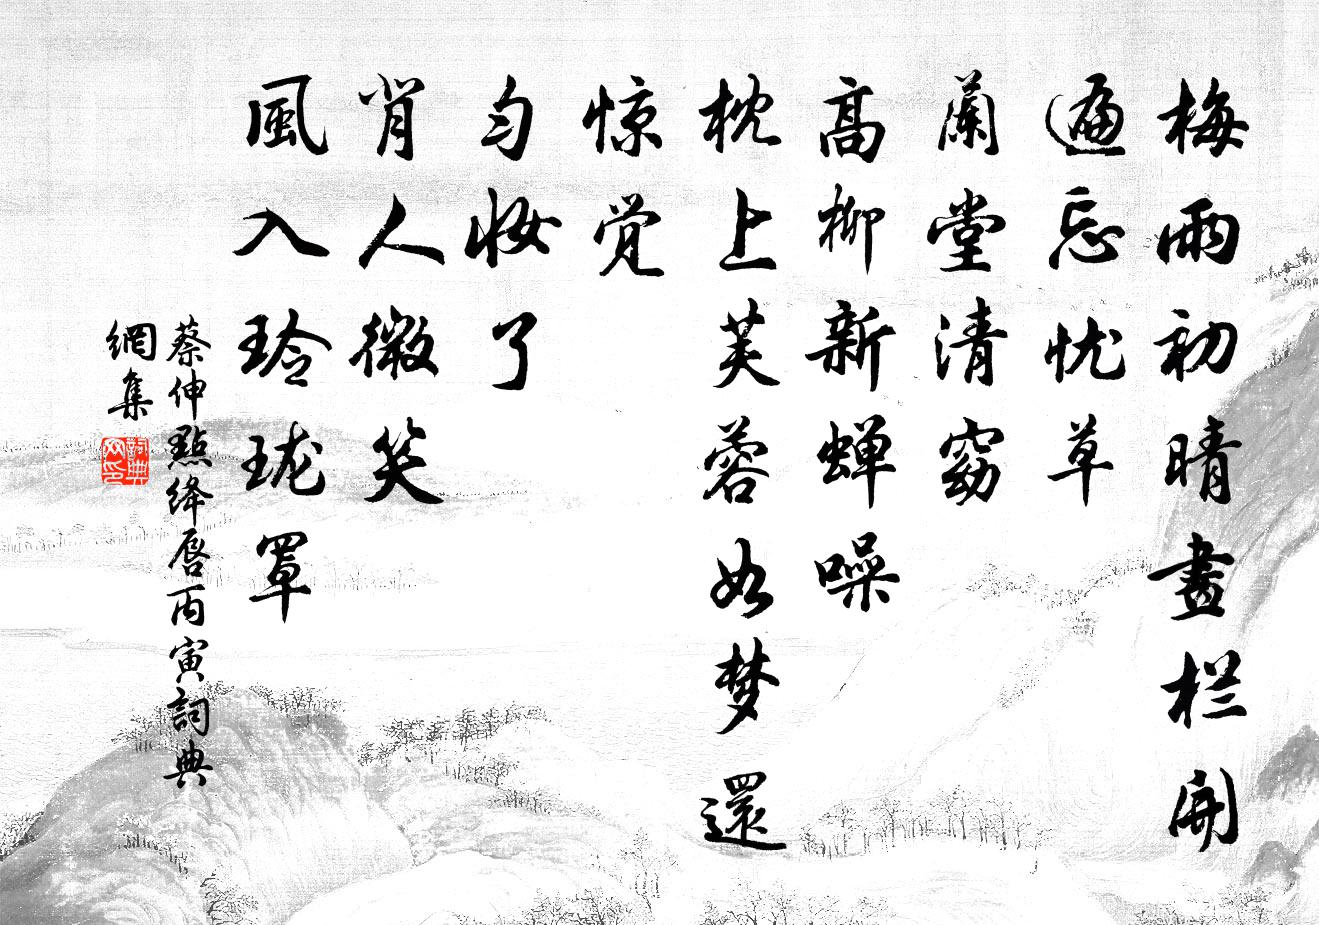 梅雨初晴畫栏開
遍忘忧草
蘭堂清窈
高柳新蝉噪
枕上芙蓉如梦還
惊觉
匀妆了
肖人微笑
風入玲珑罩
蔡伸點绛唇丙寅詞典
網集